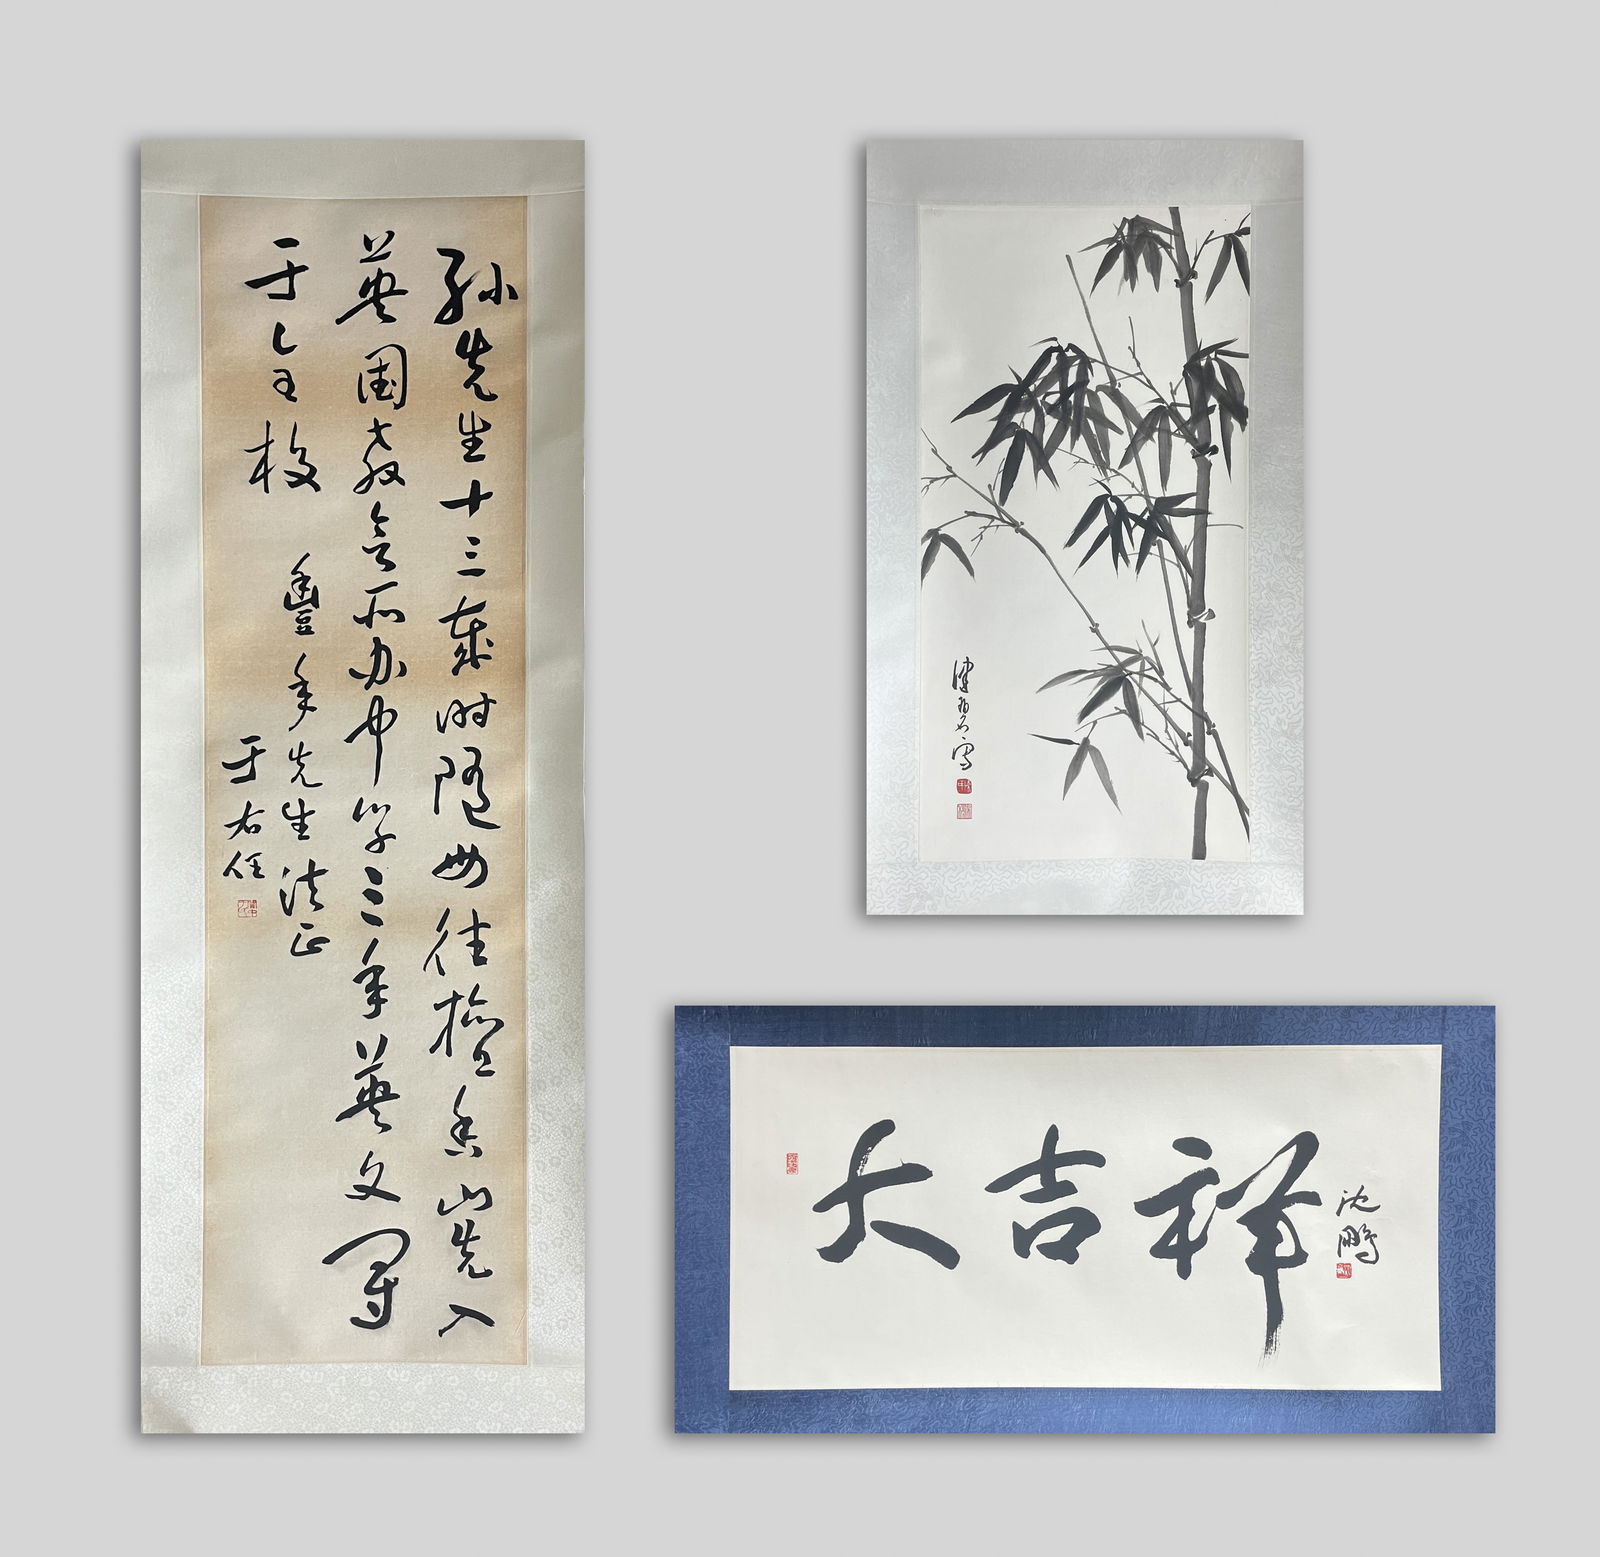 孫先生十三歲時隨母往檀香山先入
英國教會所辦中學三年英文冠
于全校
豐年先生法正
于右任
寫
大吉祥
沈鵬